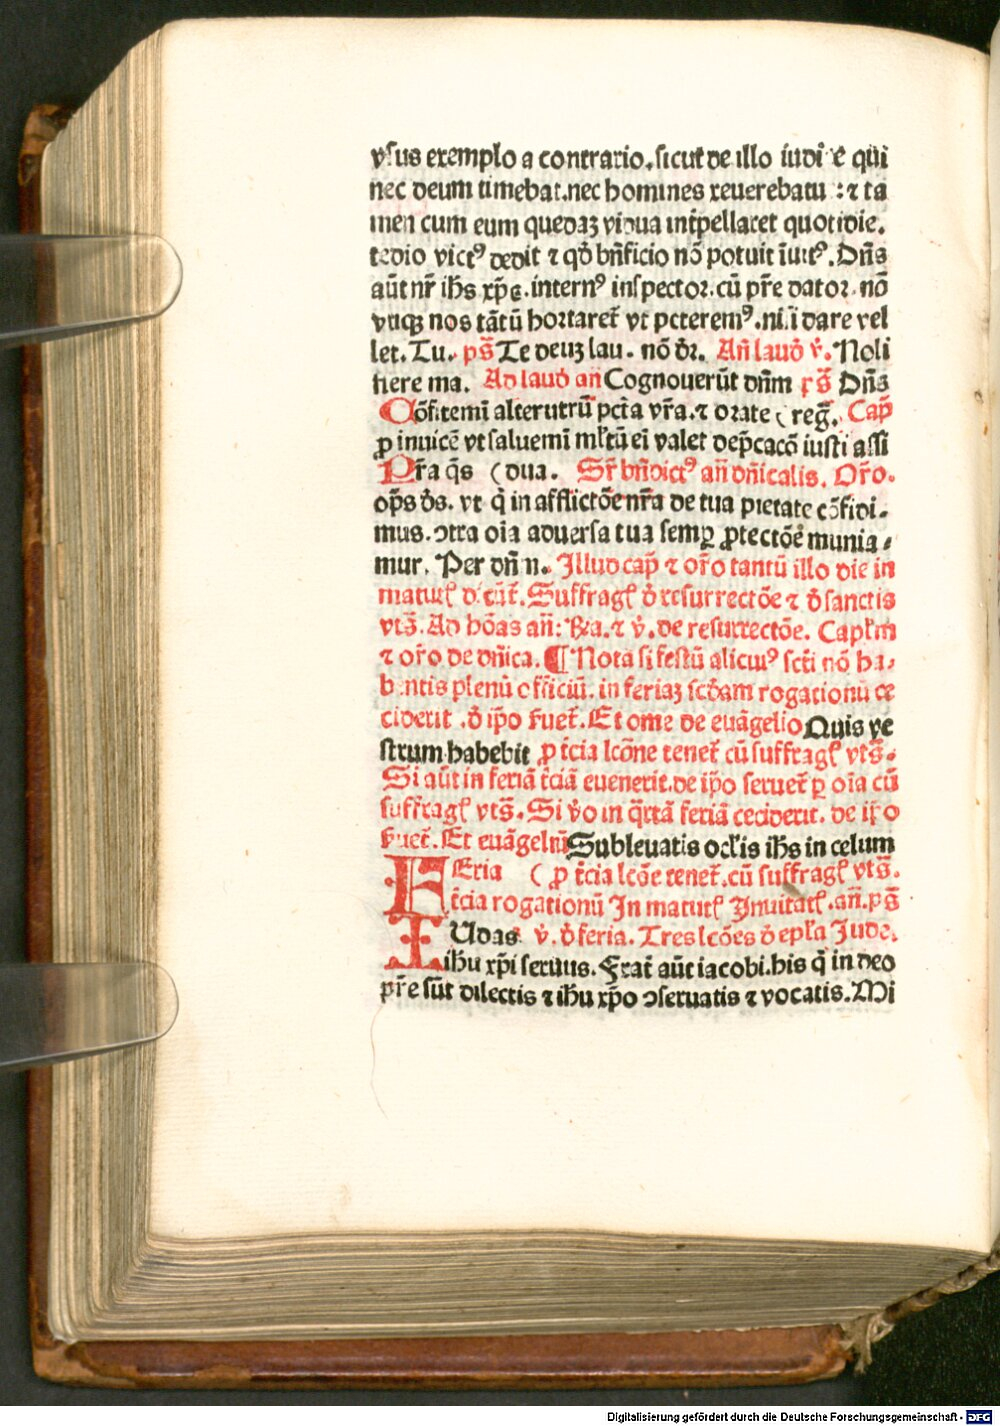 vsus exemplo a contrario. sicut de illo iudi e qui
nec deum timebat. nec homines reuerebatu : ⁊ ta
men cum eum quedaꝫ vidua int̄pellaret quotidie.
tedio victꝰ dedit ⁊ qd̄ bn̄ficio nō potuit
aūt nr̄ ih̄s xp̄s. internꝰ inspector. cū pr̄e dator. nō
vtiqꝫ nos tātū hortaret̄ vt peteremꝰ. nisi dare vel
let. Tu. ps̄ Te deuꝫ lau. nō dr̄. An̄ laud̄ v̄. Noli
flere ma. Ad laud̄ an̄ Cognouerūt dn̄m ps̄ Dn̄s
Cōfitemī alterutrū pctā vr̄a. ⁊ orate ( reḡ. Cap̄
ꝓ inuicē vt saluemī ml̄tū eī valet dep̄cacō iusti assi
Pr̄a q̄s ( dua. Sr̄ bn̄dictꝰ an̄ dn̄icalis. Or̄o.
op̄s ds. vt q̄ in afflictōe nr̄a de tua pietate cōfidi-
mus. ↄtra oīa aduersa tua semꝑ ꝓtectōe munia-
mur. Per dn̄ n. Illud cap̄ ⁊ or̄o tantū illo die in
Suffragꝭ d̄ resurrectōe ⁊ d̄ sanctis
vts̄. Ad hōas an̄: ⁊ v̄. de resurrectōe. Capl̄m
⁊ or̄o de dn̄ica. ¶ Nota si festū alicuiꝰ scti nō ha-
bentis plenū officiū. in feriaꝫ scd̄am rogationū ce
ciderit. d̄ ip̄o fuet̄. Et ome de euāgelio Quis ve
strum habebit ꝓ t̄cia lcōne tenet̄ cū suffragꝭ vts̄.
Si aūt in feriā t̄ciā euenerit. de ip̄o seruet̄ ꝑ oīa cū
suffragꝭ vts̄. Si v̄o in q̄rtā feriā ceciderit. de ip̄o
fuet̄. Et euāgeliū Subleuatis oclis ih̄s in celum
FEria ( ꝓ t̄cia lcōe tenet̄. cū suffragꝭ vts̄.
t̄cia rogationū In matutꝭ Inuitatꝭ. an̄. ps̄
IUdas v̄. d̄ feria. Tres lcōes d̄ epl̄a Jude.
ih̄u xp̄i seruus. Frat̄ aūt iacobi. his q̄ in deo
pr̄e sūt dilectis ⁊ ih̄u xp̄o ↄseruatis ⁊ vocatis. Mi
Digitalisierung gefördert durch die Deutsche Forschungsgemeinschaft - DFG